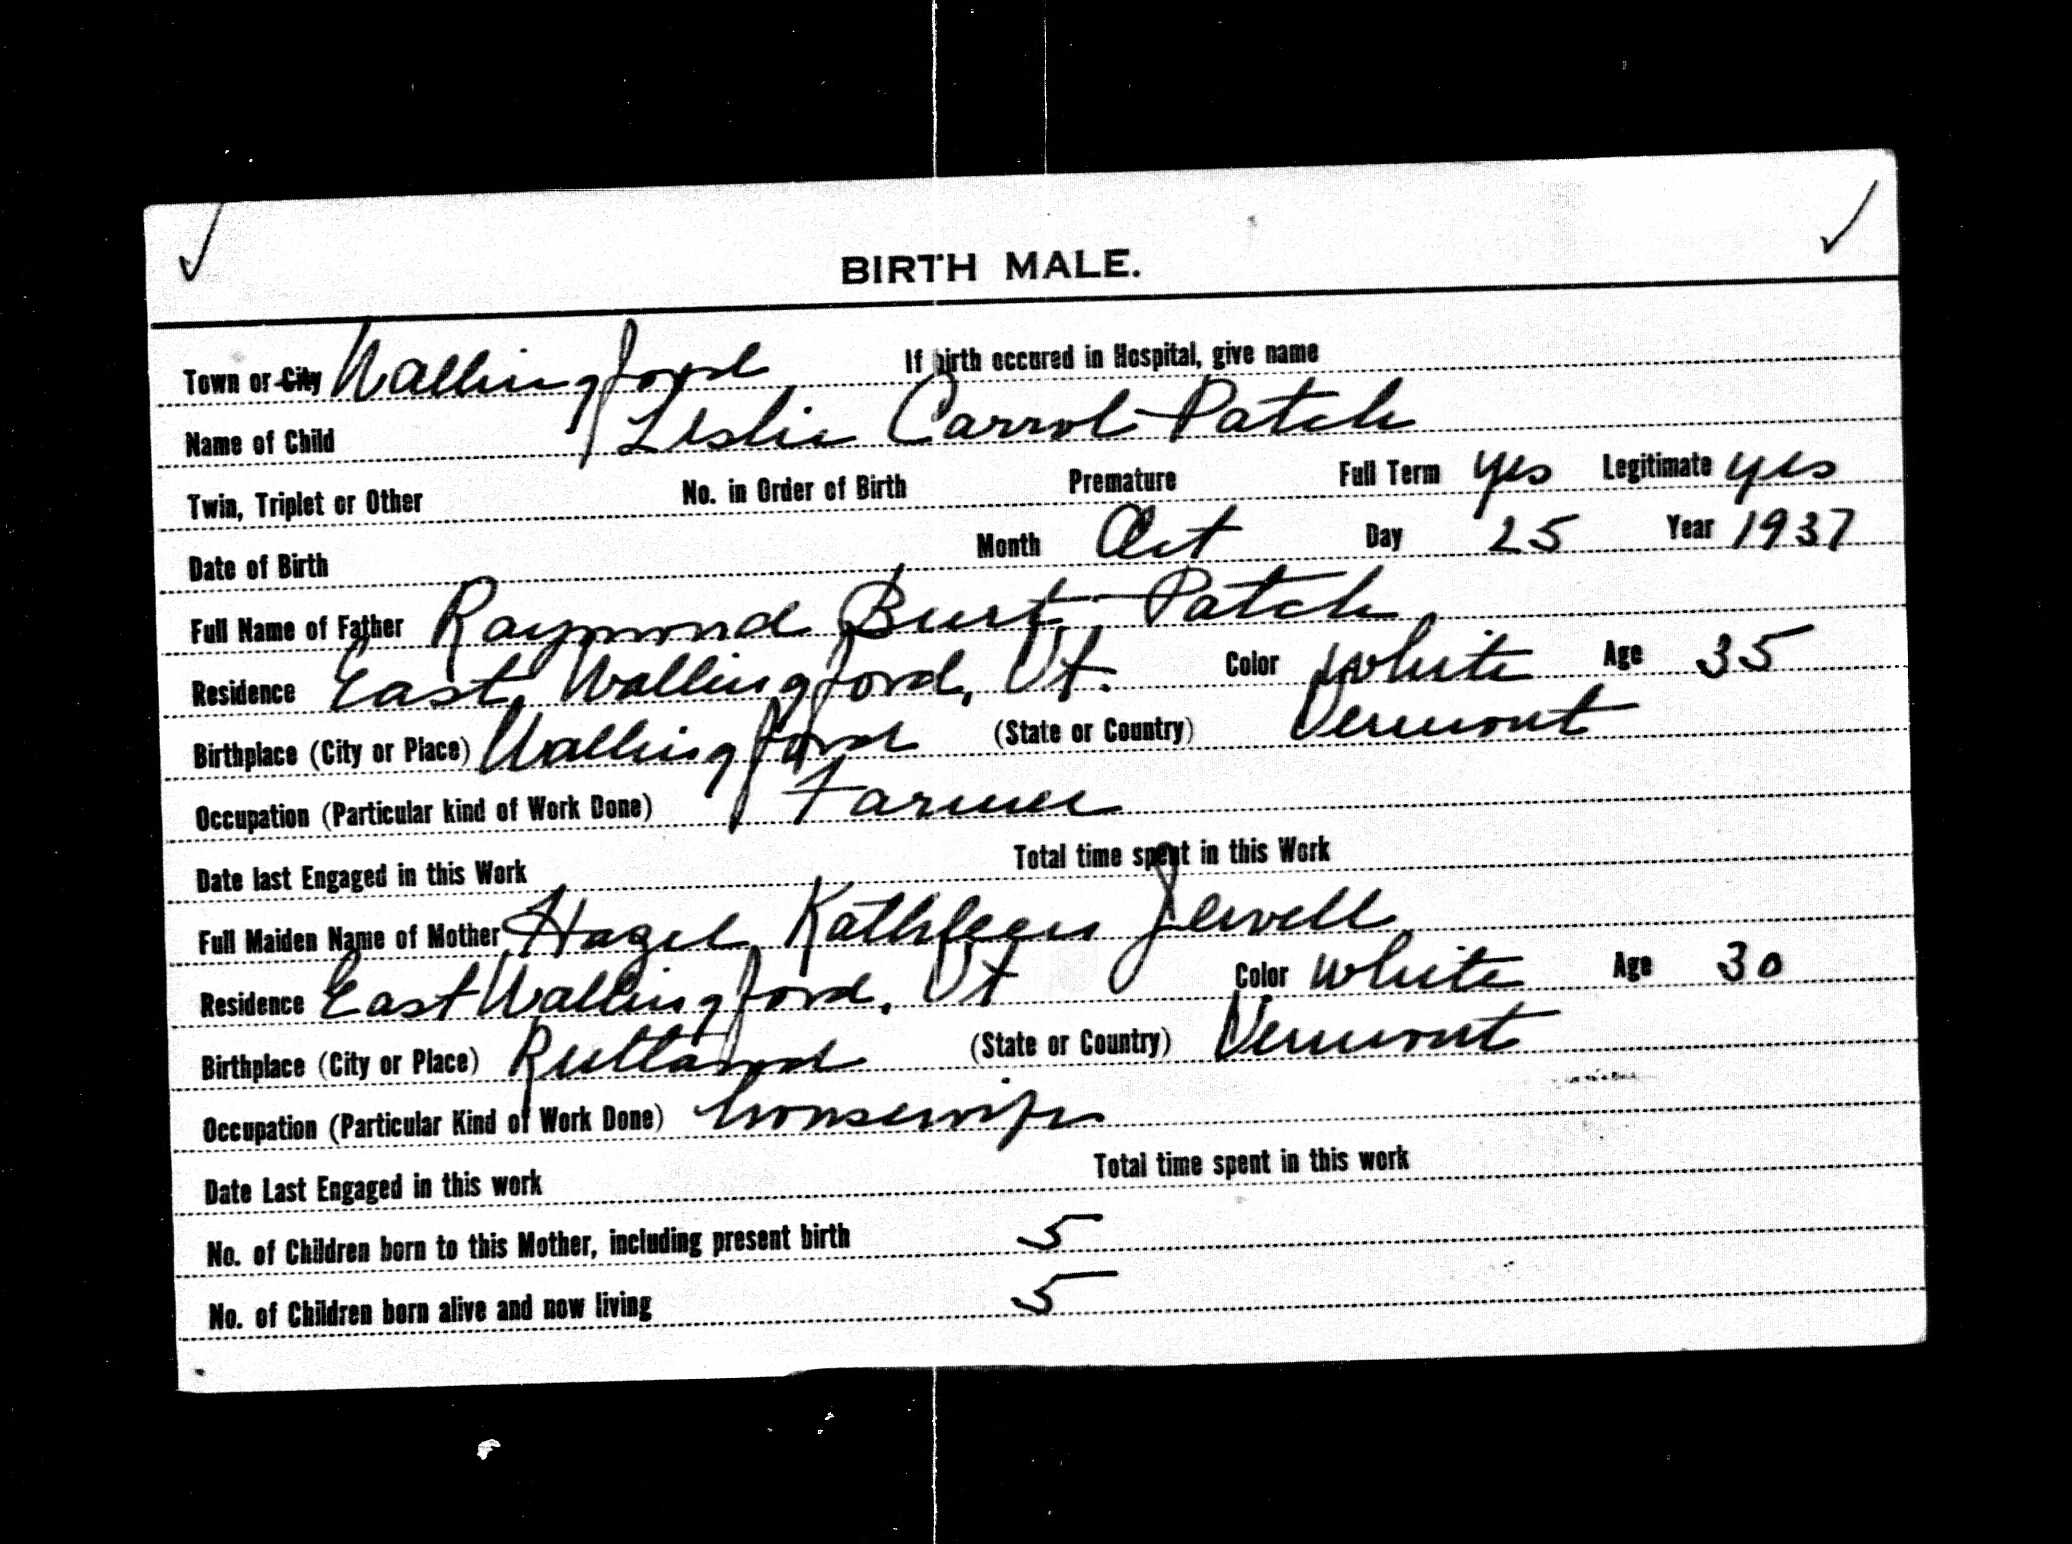 BIRTH MALE.
Town or City Wallingford If birth occured in Hospital, give name
Name of Child Leslie Carrol Patch
Twin, Triplet or Other No. in Order of Birth Premature Full Term yes Legitimate yes
Date of Birth Month Oct Day 25 Year 1937
Full Name of Father Raymond Burt Patch
Residence East Wallingford, Vt. Color white Age 35
Birthplace (City or Place) Wallingford (State or Country) Vermont
Occupation (Particular kind of Work Done) Farmer
Date last Engaged in this Work Total time spent in this Work
Full Maiden Name of Mother Hazel Kathleen Jewell
Residence East Wallingford, Vt Color white Age 30
Birthplace (City or Place) Rutland (State or Country) Vermont
Occupation (Particular Kind of Work Done) housewife
Date Last Engaged in this work Total time spent in this work
No. of Children born to this Mother, including present birth 5
No. of Children born alive and now living 5